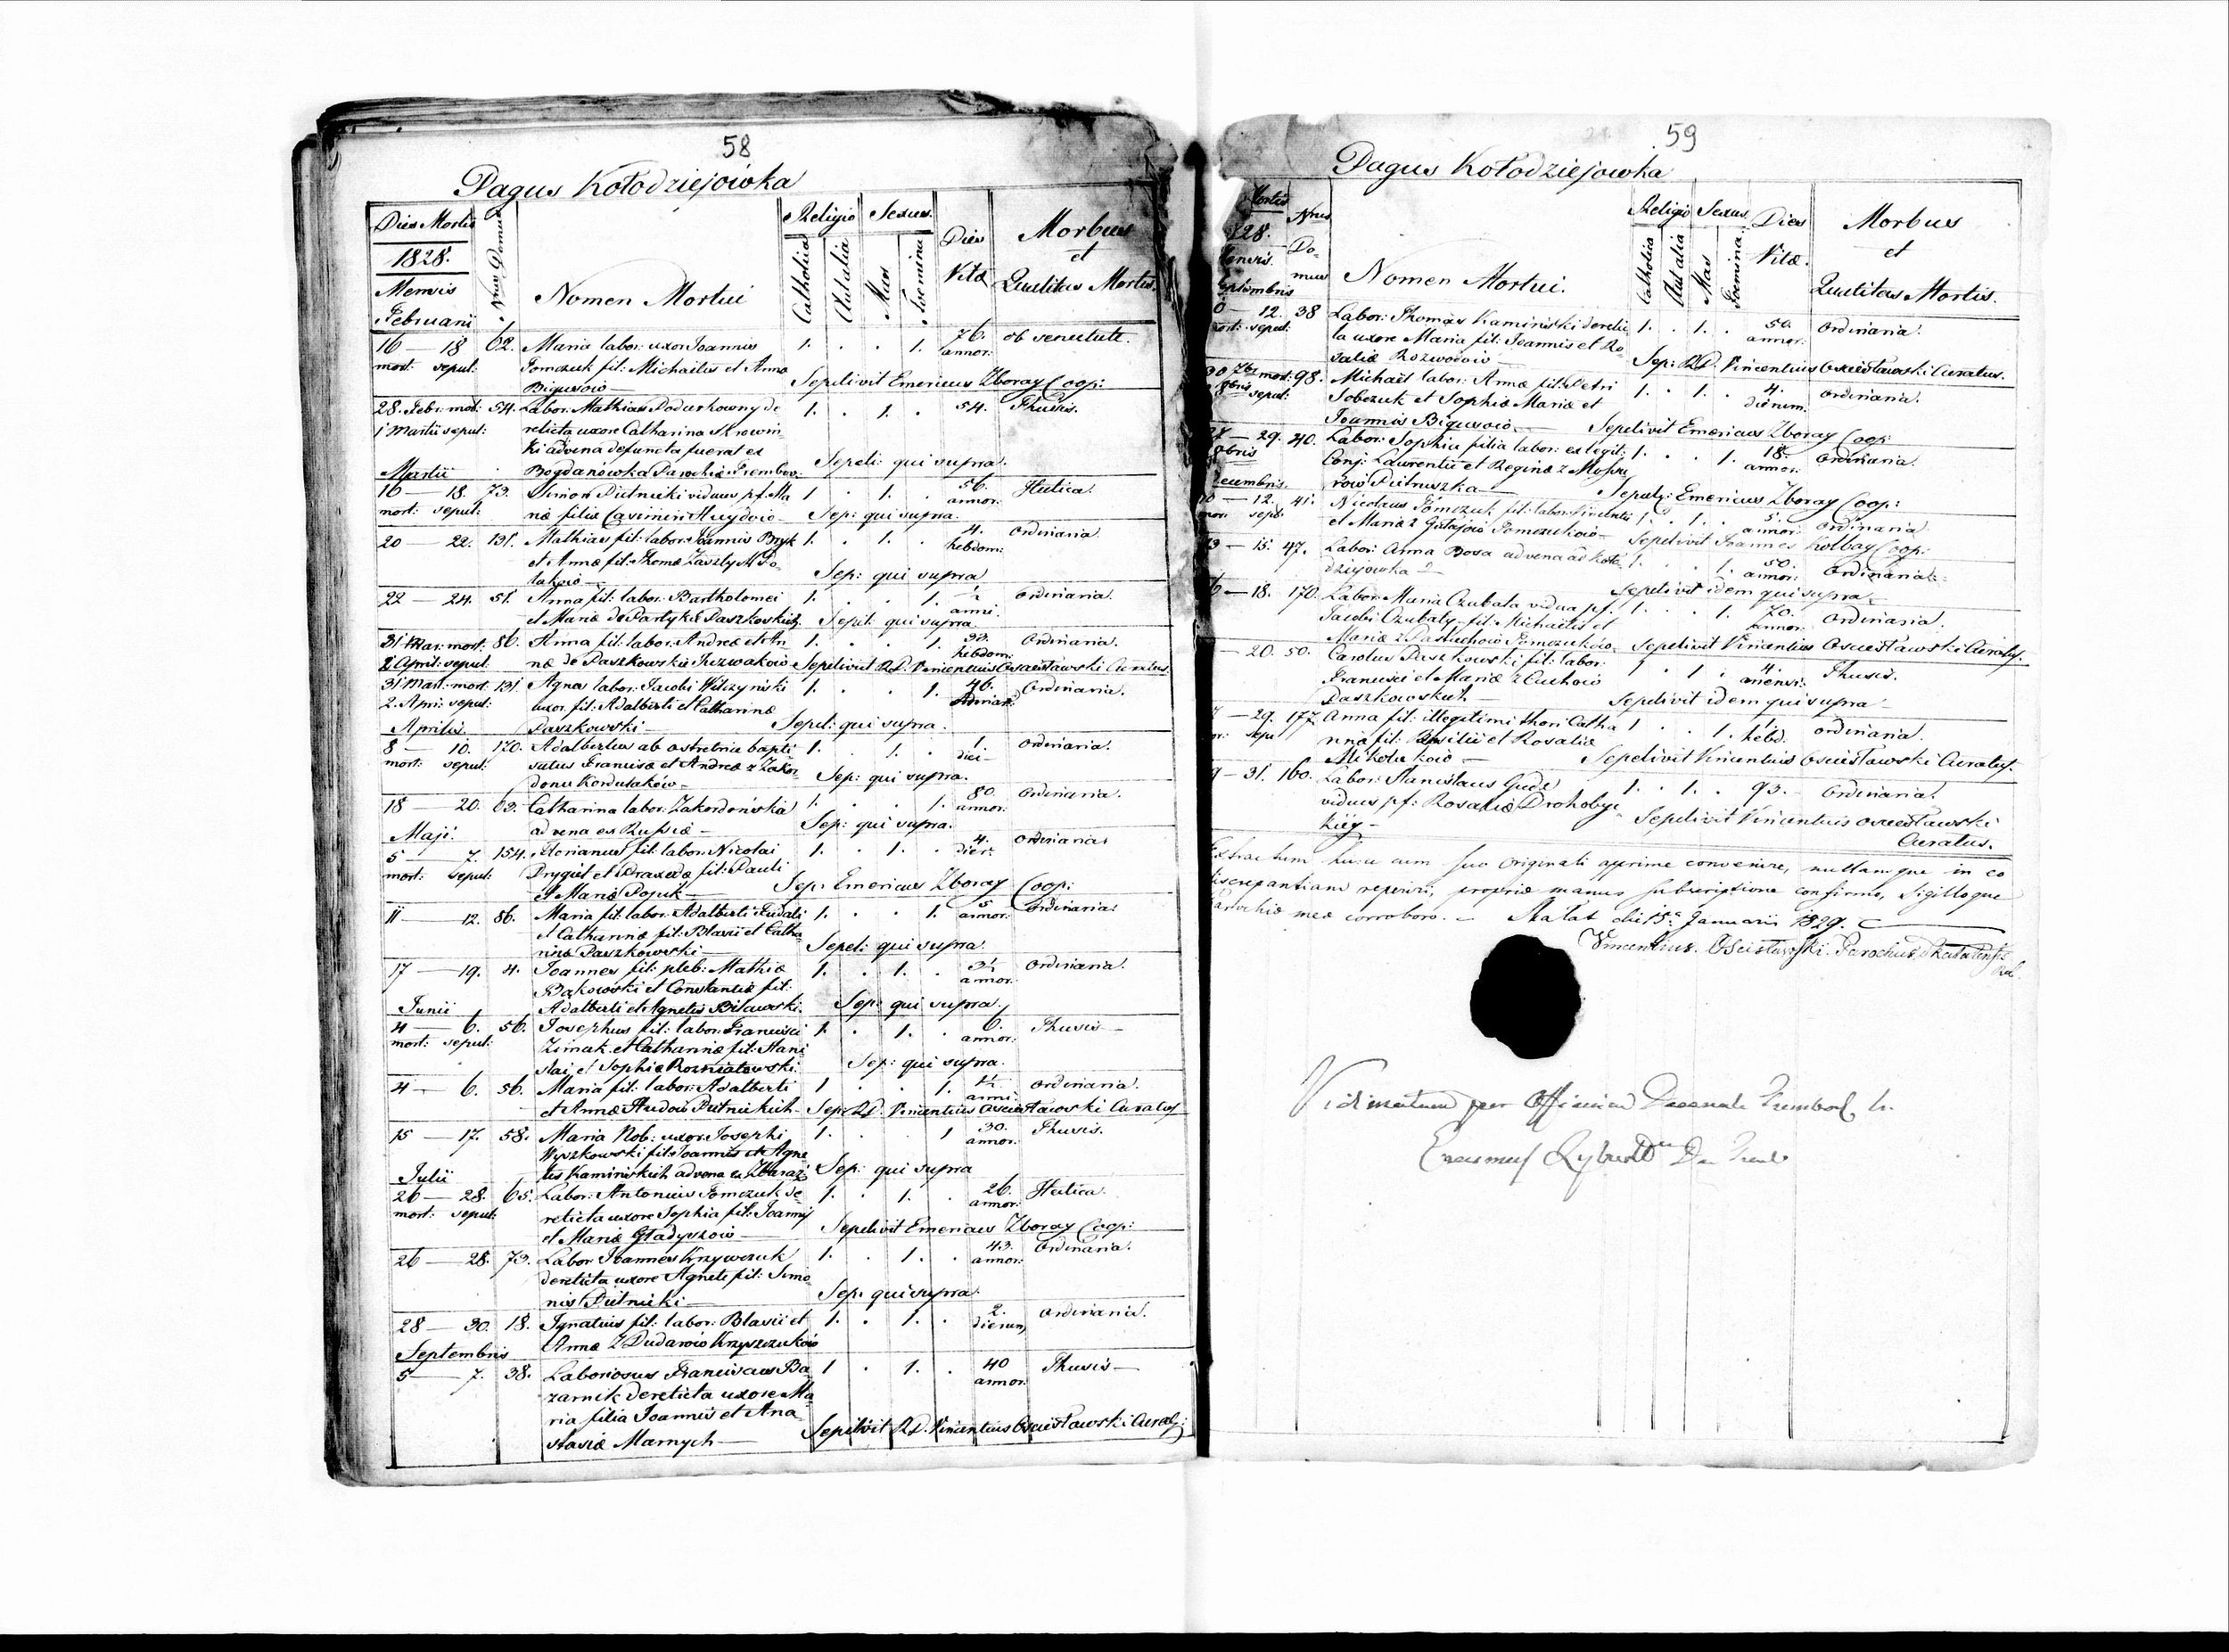 58
Pagus Kołodziejowka
Dies Mortis
1828.
Mensis
Februarii
Nrus Domus
Nomen Mortui
Religio
Catholica
Aut alia
Sexus
Mas
Foemina
Dies
Vitæ
Morbus
et
Qualitas Mortis.
16 — 18 62. Maria labor: uxor Joannis 1. . . 1. 76. ob senectute.
mort: sepul: Tomczuk fil: Michaelis et Anna annor:
Bigusow — Sepelivit Emericus Zboray Coop:
28. Febr: mort: 54. Labor: Mathias Podurkowny de 1. . 1. . 54. Thusis.
1 Martii sepul: relicta uxore Catharina
ki advena defuncta fuerat ex
Martii Bogdanowka Parochiæ Trembow: Sepeli: qui supra.
16 — 18. 73. Simon Piétnicki viduus p.f. Ma 1 . 1. . 56. Hectica.
mort: sepul: næ filiæ Casimiri Huydow — Sep: qui supra. annor:
20 — 22. 131. Mathias fil: labor: Joannis Bryk 1. . 1. . 4. Ordinaria
et Annæ fil: Thomæ Zaszlych Po= hebdom:
lakow — Sep: qui supra
22 — 24. 51. Anna fil: labor: Bartholomei 1. . . 1. ½ Ordinaria.
et Mariæ de Partyka Paszkoskich Sepel: qui supra anni.
31 Mar: mort: 86. Anna fil: labor: Andreæ et An= 1. . . 1. hebdom: Ordinaria.
2 April: sepul. næ de Paszkowskie Juzwakow Sepelivit R.D. Vincentius Oscisławski Curatus.
31 Mart: mort: 131. Agnes labor: Jacobi Wilczyński 1. . . 1. 46. Ordinaria.
2. Apri: sepul: uxor fil: Adalberti et Catharinæ annor:
Aprilis. Paszkowski — Sepel: qui supra.
8 — 10. 170. Adalbertus ab ostretrice bapti= 1. . 1. . 1. Ordinaria.
mort: sepul: satus Francisci et Andreæ z Zakor= diei —
donu Kordulaków — Sep: qui supra.
18 — 20. 63. Catharina labor: Zakordońska 1. . . 1. 80. Ordinaria.
advena ex Russia — Sep: qui supra. annor:
Maji.
5 — 7. 154. Florianus fil: labor: Nicolai 1. . 1. . 4. Ordinaria
mort: sepul: et Praxedæ fil: Pauli dier:
et Mariæ Pojuk — Sep: Emericus Zboray Coop:
11 — 12. 86. Maria fil: labor: Adalberti 1. . . 1. 5 Ordinaria.
et Catharinæ fil: Blasii et Catha= annor:
rinæ Paszkowski — Sepel: qui supra.
17 — 19. 4. Joannes fil: pleb: Mathiæ 1. . 1. . 3½ Ordinaria.
Bąkowski et Constantiæ fil: annor:
Junii Adalberti et Agnetis Bilawski. Sep: qui supra.
4 — 6. 56. Josephus fil: labor: Francisci 1. . 1. . 6. Thusis —
mort: sepul: Zimak et Catharinæ fil: Stani annor:
slai et Sophiæ Rozniatowski. Sep: qui supra.
4 — 6. 56. Maria fil: labor: Adalberti 1 . . 1. Ordinaria.
et Annæ Hudow Piétnickich — Sep: R.D. Vincentius Oscisławski Curatus
15 — 17. 58. Maria Nob: uxor Josephi 1. . . 1 30. Thusis.
Wyszkowski fil: Joannis et Agne annor:
Julii tis Kaminskich advena ex Zbaraż Sep: qui supra
26 — 28. 65. Labor: Antonius Tomczuk de= 1. . 1. . 26. Hectica.
mort: sepul: relicta uxore Sophia fil: Joannis annor:
et Mariæ Gładyszow — Sepelivit Emericus Zboray Coop:
26 — 28. 73. Labor: Joannes Krzywczuk 1. . 1. . 43. Ordinaria.
derelicta uxore Agnete fil: Simo= annor:
nis Piétnicki — Sep: qui supra.
28 — 30. 18. Ignatius fil: labor: Blasii et 1. . 1. . 2. Ordinaria.
Septembris Annæ z Dudarow Kryszczukow dierum
5 — 7. 38. Laboriosus Franciscus Ba= 1 . 1. . 40 Thusis —
zarnik derelicta uxore Ma annor.
ria filia Joannis et Ana=
stasiæ Marnych — Sepelivit R.D. Vincentius Oscisławski Curatus:
59
Pagus Kołodziejowka
Mortis
Nrus
Do=
mus
Nomen Mortui.
Religio
Catholica
Aut alia
Sexus
Mas
Foemina.
Dies
Vitæ.
Morbus
et
Qualitas Mortis.
12. 38 Labor: Thomas Kaminski derelic 1. . 1. . 50. Ordinaria.
mort: sepul: ta uxore Maria fil: Joannis et Ro= annor:
saliæ Rozwodow — Sep: R.D. Vincentius Oscisławski Curatus.
30 7bris mort: 98. Michaël labor: Annæ fil: Petri 1. . 1. . 4. Ordinaria.
sepul: Sobczuk et Sophiæ Mariæ et dierum.
Joannis Bigusow — Sepelivit Emericus Zboray Coop:
27 — 29. 40. Labor: Sophia filia labor: ex legit: 1. . . 1. 18. Ordinaria.
Conj: Laurentii et Reginæ z annor:
Decembris. row Pietruszka — Sepul: Emericus Zboray Coop:
10 — 12. 41. Nicolaus Tomczuk fil: labor: 1. . 1. . 5. Ordinaria
mor: sepul: et Mariæ z Tomczukow — Sepelivit Joannes Kolbay Coop:
13 — 15. 47. Labor: Anna Bosa advena ad Koło= 1. . . 1. 50. Ordinaria.
dziejowka — Sepelivit idem qui supra — annor:
16 — 18. 170. Labor: Maria Czubata vidua p.f. 1. . . 1. 70. Ordinaria.
Jacobi Czubaty fil: Michaelis et annor:
Mariæ z Pastuchow Tomczukow. Sepelivit Vincentius Oscisławski Curatus.
— 20. 50. Carolus Paszkowski fil: labor: 1 . 1 . 4. Thusis.
Francisci et Mariæ z Cuchow mensi:
Paszkowskich — Sepelivit idem qui supra —
— 29. 177. Anna fil: illegitimi thori Catha 1 . . 1. 1. Ordinaria.
rinæ fil: Basilii et Rosaliæ hebd.
Mikolukow — Sepelivit Vincentius Oscisławski Curatus.
— 31. 160. Labor: Stanislaus Gudz 1. . 1. . 93. — Ordinaria.
viduus p.f: Rosaliæ Drohobyc=
kiej — Sepelivit Vincentius Oscisławski
Curatus.
Extractum hunc cum suo Originali apprime convenire, nullamque in eo
discrepantiam reperiri, propriæ manus subscriptione confirmo, sigilloque
Parochiæ meæ corroboro. — Skałat die 15a Januarii 1829.
Vincentius Oscisławski Parochus Skalatensis
Vidimatum per Officium Decanale